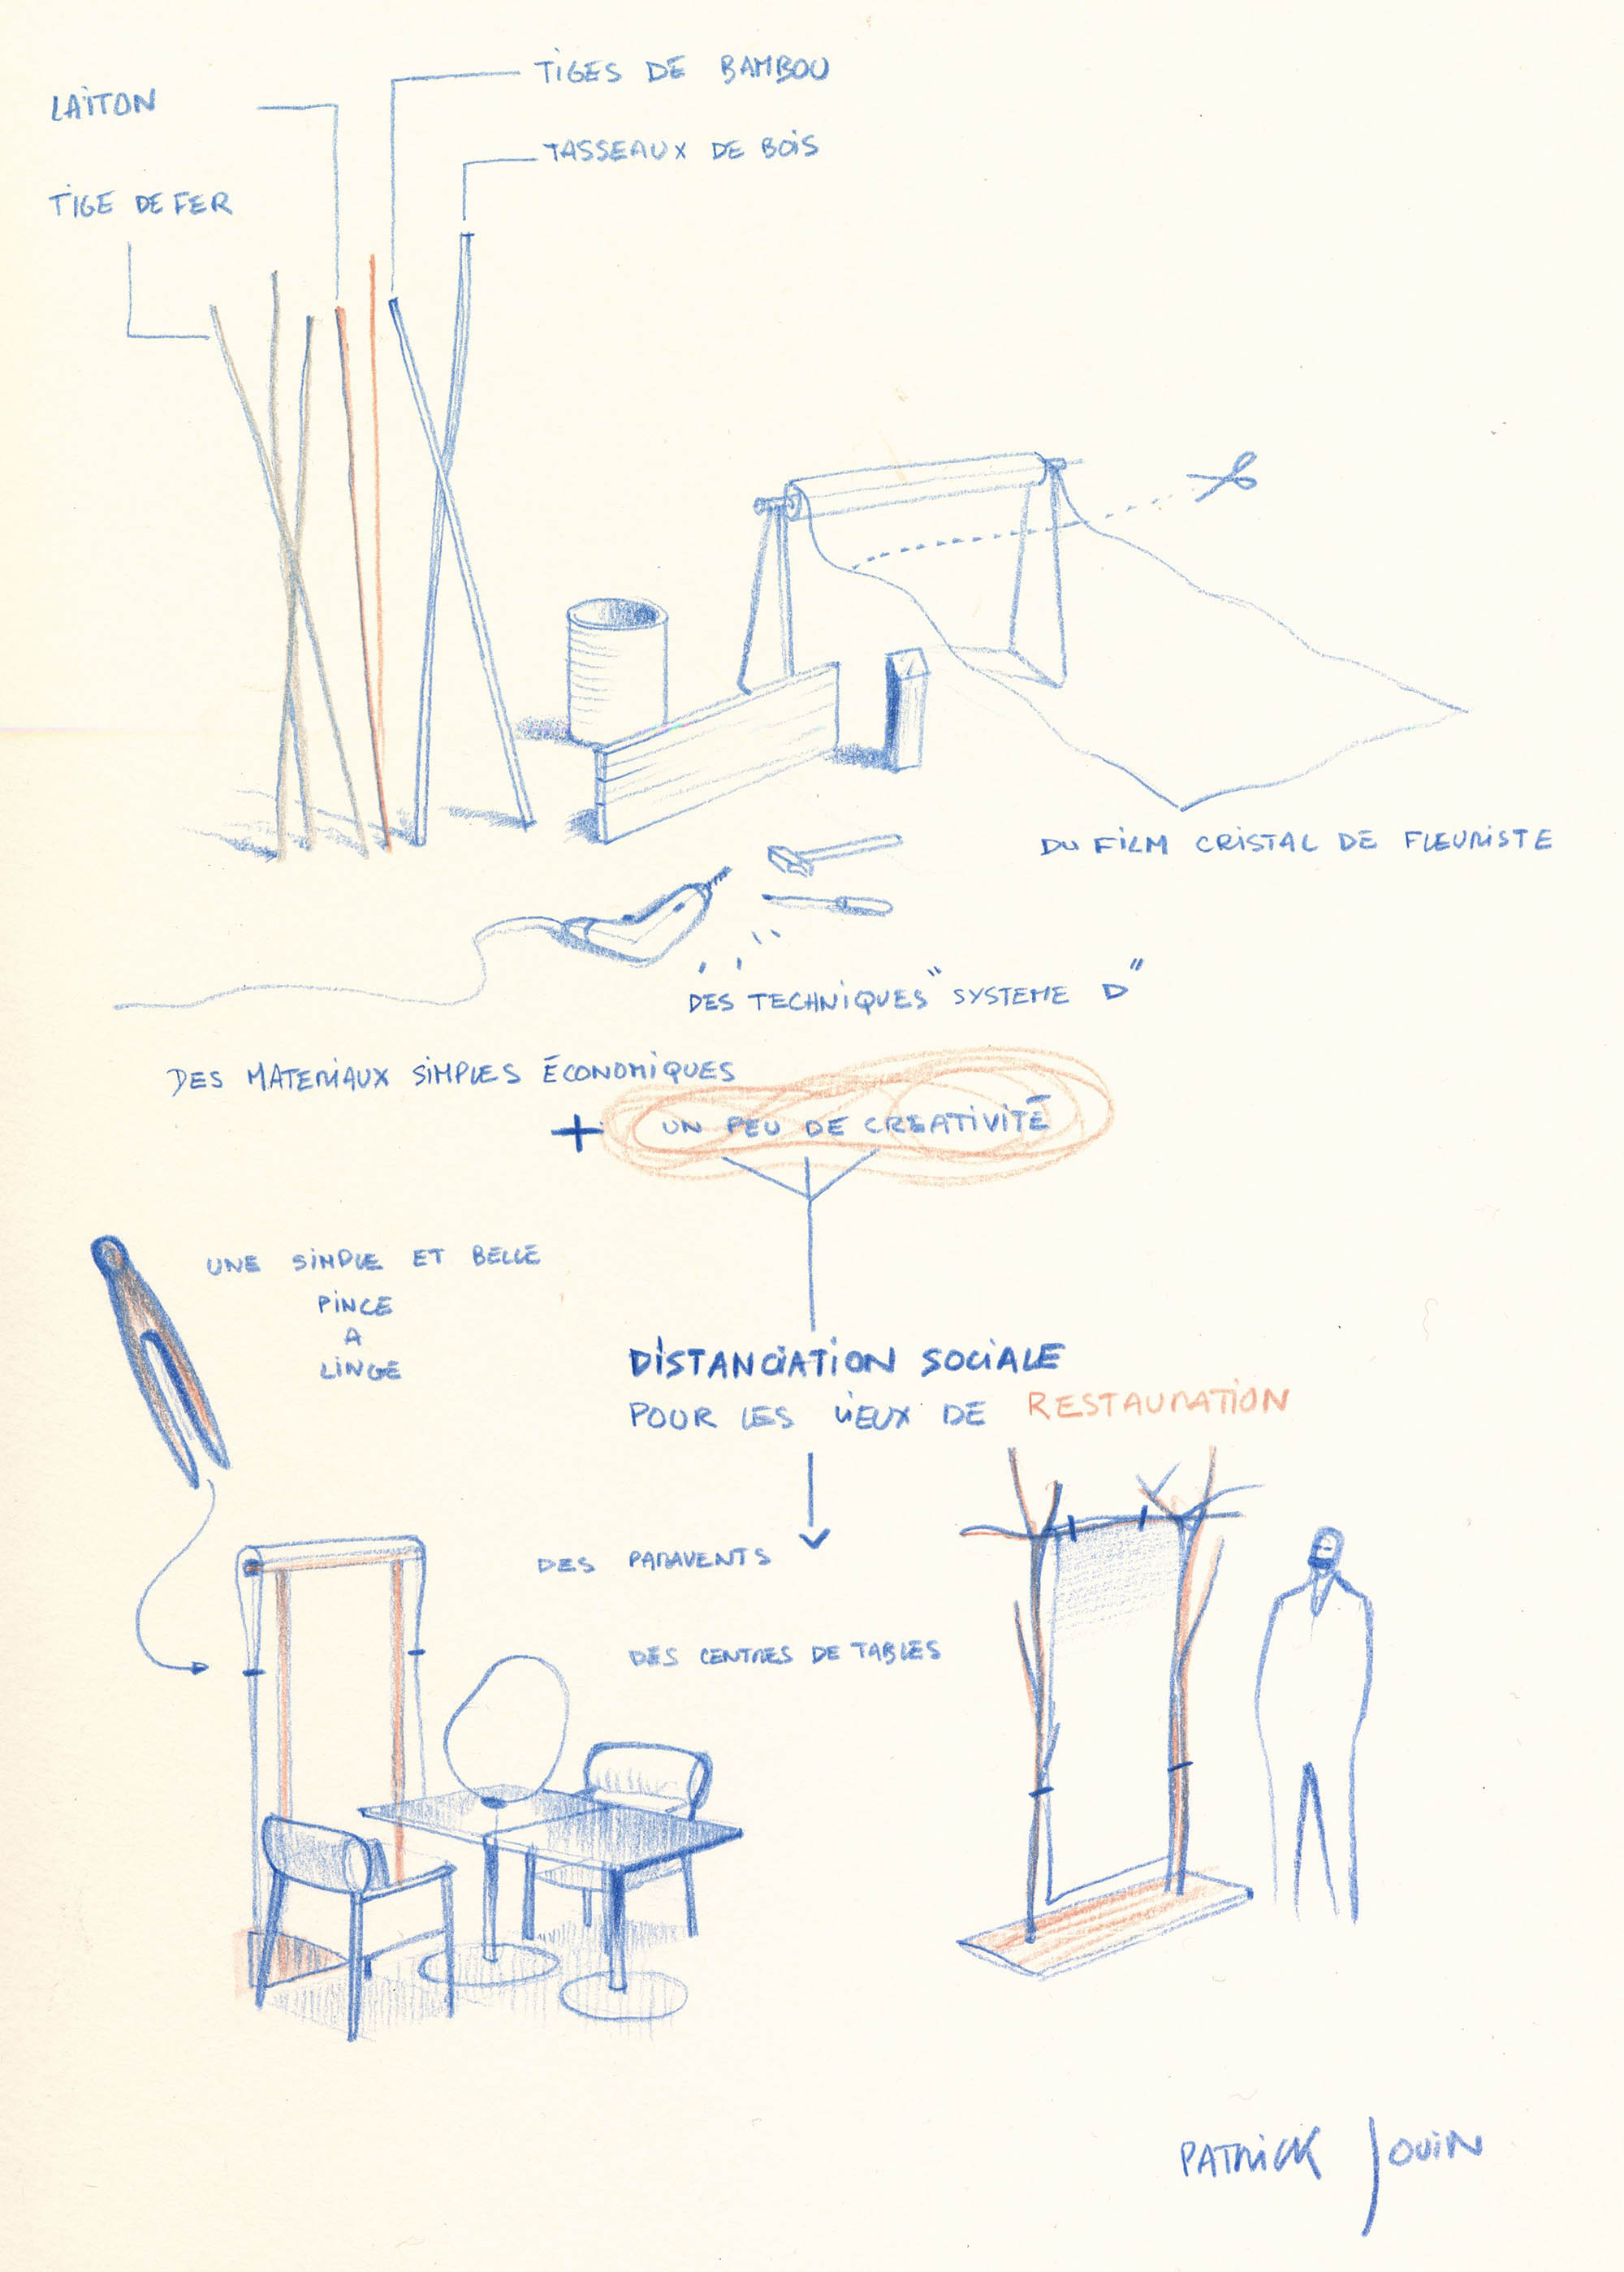 TIGES DE BAMBOU
LAITON
TASSEAUX DE BOIS
TIGE DE FER
DU FILM CRISTAL DE FLEURISTE
DES TECHNIQUES "SYSTEME D"
DES MATERIAUX SIMPLES ÉCONOMIQUES
+ UN PEU DE CREATIVITÉ
UNE SIMPLE ET BELLE
PINCE
A
LINGE
DISTANCIATION SOCIALE
POUR LES LIEUX DE RESTAURATION
DES PARAVENTS
DES CENTRES DE TABLES
PATRICK JOUIN